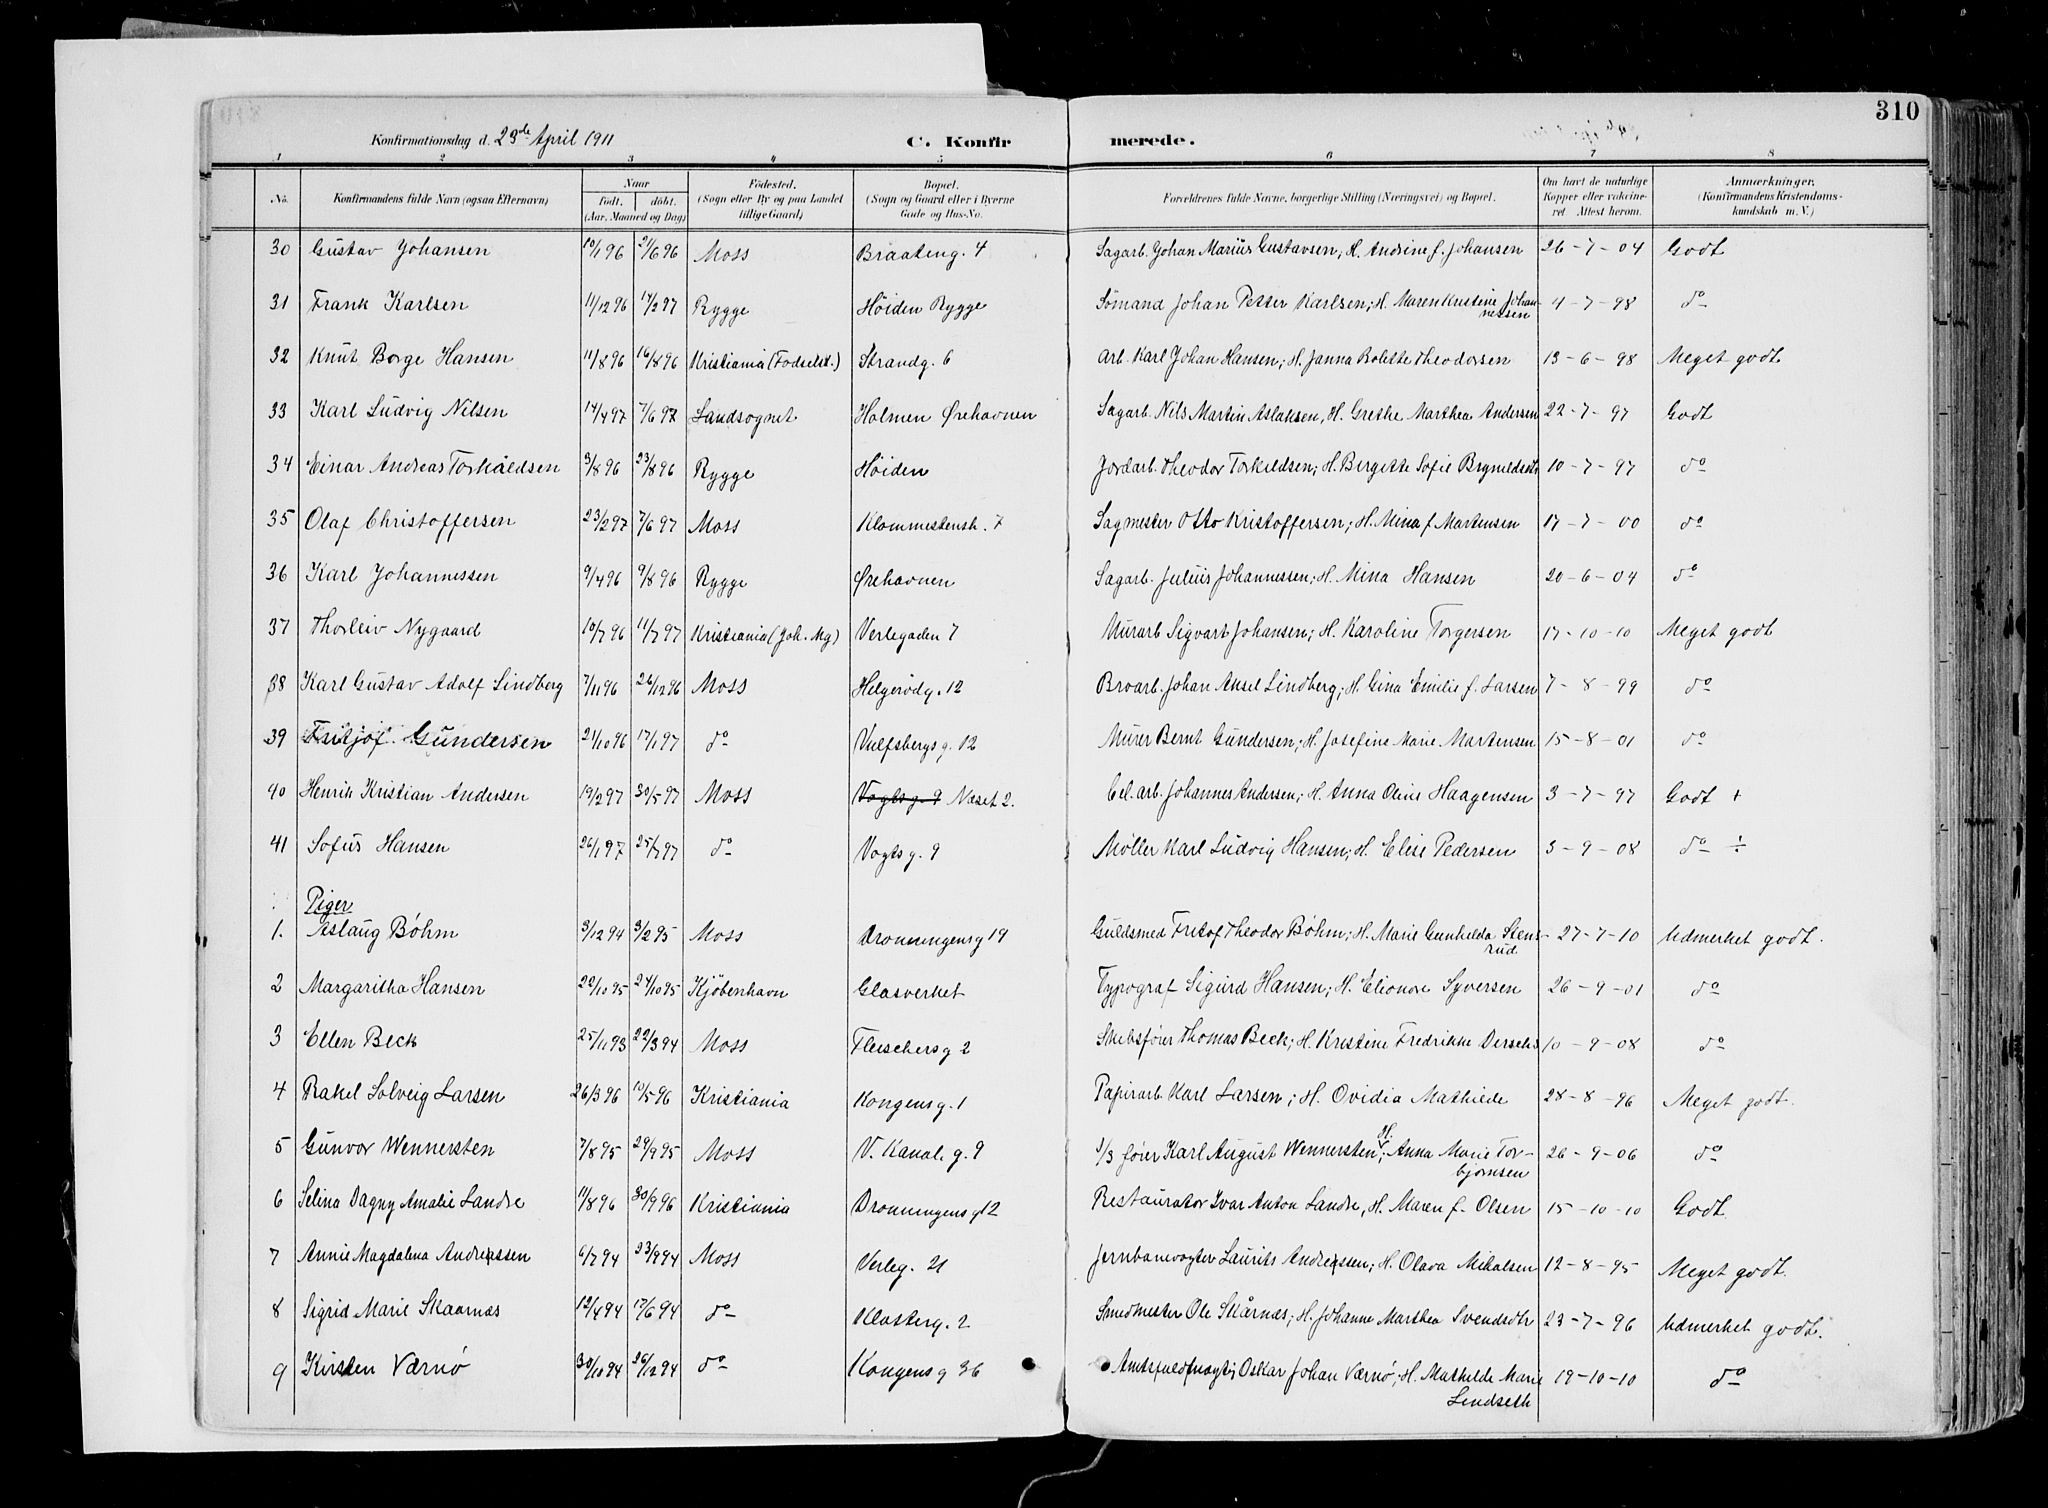 310
Konfirmationsdag d. 23de April 1911 C. Konfirmerede.
1 2 3 4 5 6 7 8
No. Konfirmandens fulde Navn (ogsaa Efternavn) Naar født. døbt. (Aar, Maaned og Dag) Fødested. (Sogn eller By og paa Landet tillige Gaard) Bopæl. (Sogn og Gaard eller i Byerne Gade og Hus-No. Forældrenes fulde Navne, borgerlige Stilling (Næringsvei) og Bopæl. Om havt de naturlige Kopper eller vakcineret Attest herom. Anmærkninger. (Konfirmandens Kristendomskundskab m. V.)
30 Gustav Johansen 10/1 96 21/6 96 Moss Braateng. 4 Sagarb. Johan Marius Gustavsen, H. Andrine f. Johansen 26-7-04 Godt
31 Frank Karlsen 11/12 96 14/2 97 Rygge Höiden Rygge Sömand Johan Petter Karlsen; H. Maren Kristine Johannessen 4-7-98 do
32 Knut Borge Hansen 11/8 96 16/8 96 Kristiania (Fødselst.) Strandg. 6 Arb. Karl Johan Hansen; H. Janna Bolette Theodorsen 13-6-98 Meget godt
33 Karl Ludvig Nilsen 14/4 97 7/6 97 Landsognet Holmen Ørehavnen Sagarb. Nils Martin Aslaksen, H. Grethe Marthea Andersen 22-7-97 Godt
34 Einar Andreas Torkildsen 3/8 96 23/8 96 Rygge Höiden Jordarb. Theodor Torkildsen; H. Bergette Sofie 10-7-97 do
35 Olaf Christoffersen 23/2 97 7/6 97 Moss Klommestensb. 7 Sagmester Otto Kristoffersen; H. Mina f. Martensen 17-7-00 do
36 Karl Johannessen 9/4 96 9/8 96 Rygge Ørehavnen Sagarb. Julius Johannessen; H. Mina Hansen 20-6-04 do
37 Thorleiv Nygaard 10/7 96 11/7 97 Kristiania (Joh. Mg) Verlegaden 7 Murarb Sigvart Johansen; H. Karoline Torgersen 17-10-10 Meget godt
38 Karl Gustav Adolf Lindberg 7/11 96 26/12 96 Moss Helgerödg. 12 Broarb. Johan Aksel Lindberg; H. Gina Emilie f. Larsen 7-8-99 do
39 Fritjof Gundersen 21/10 96 17/1 97 do Vulfsbergs g. 12 Murer Bernt Gundersen; H. Josefine Marie Martensen 15-8-01 do
40 Henrik Kristian Andersen 19/2 97 30/5 97 Moss Vogts g. 9 Næset 2. Cel. arb. Johannes Andersen; H. Anna Oline Haagensen 3-7-97 Godt +
41 Sofus Hansen 26/1 97 25/7 97 do Vogts g. 9 Møller Karl Ludvig Hansen; H. Elise Pedersen 3-9-08 do ÷
Piger
1. Aslaug Böhm 3/12 94 3/2 95 Moss Dronningens g 19 Guldsmed Fritof Theodor Böhm; H. Marie Gunhilda Stensrud 27-7-10 Udmerket godt.
2 Margaritha Hansen 22/10 95 24/10 95 Kjöbenhavn Glasverket Typograf Sigurd Hansen; H. Elionore Syversen 26-9-01 do
3 Ellen Beck 25/11 93 22/3 94 Moss Fleischers g 2 Skibsförer Thomas Beck; H. Kristine Fredrikke 10-9-08 do
4 Rakel Solveig Larsen 26/3 96 10/5 96 Kristiania Kongens g. 1 Papirarb Karl Larsen; H. Ovidia Mathilde 28-8-96 Meget godt.
5 Gunvor Wennersten 7/8 95 29/9 95 Moss V. Kanal. g. 9 S/S förer Karl August Wennersten; H. Anna Marie Torbjørnsen 26-9-06 do
6 Selina Dagny Amalie Landre 11/8 96 30/9 96 Kristiania Dronningens g 12 Restauratør Ivar Anton Landre, H. Maren f. Olsen 15-10-10 Godt
7 Annie Magdalena Andreassen 6/7 94 23/9 94 Moss Verleg. 21 Jernbanevogter Laurits Andreassen; H. Olava Mikalsen 12-8-95 Meget godt.
8 Sigrid Marie Skaarnæs 12/4 94 17/6 94 do Klosterg. 2 Smedmester Ole Skårnæs; H. Johanne Marthea Svendsdtr 23-7-96 Udmerket godt.
9 Kirsten Værnø 30/10 94 26/12 94 do Kongens g 36 Amtsfuldmægtig Oskar Johan Værnø; H. Mathilde Marie Lindseth 19-10-10 do